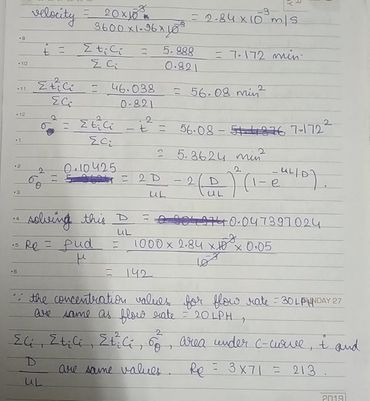 velocity = 20×10⁻³ / 3600×1.96×10⁻³ = 2.84×10⁻³ m/s
t̄ = Σtᵢcᵢ / Σcᵢ = 5.888 / 0.821 = 7.172 min
Σtᵢ²cᵢ / Σcᵢ = 46.038 / 0.821 = 56.08 min²
σ² = Σtᵢ²cᵢ / Σcᵢ - t̄² = 56.08 - 7.172²
= 5.3624 min²
0.10425
σθ² = = 2D/uL - 2(D/uL)²(1-e^-uL/D).
solving this D/uL = 0.047397024
Re = ρud/μ = 1000×2.84×10⁻³×0.05 / 10⁻³
= 142
∵ the concentration values for flow rate = 30LPH
SUNDAY 27
are same as flow rate = 20LPH,
Σcᵢ, Σtᵢcᵢ, Σtᵢ²cᵢ, σθ², area under c-curve, t̄ and
D/uL are same values. Re = 3×71 = 213.
2019